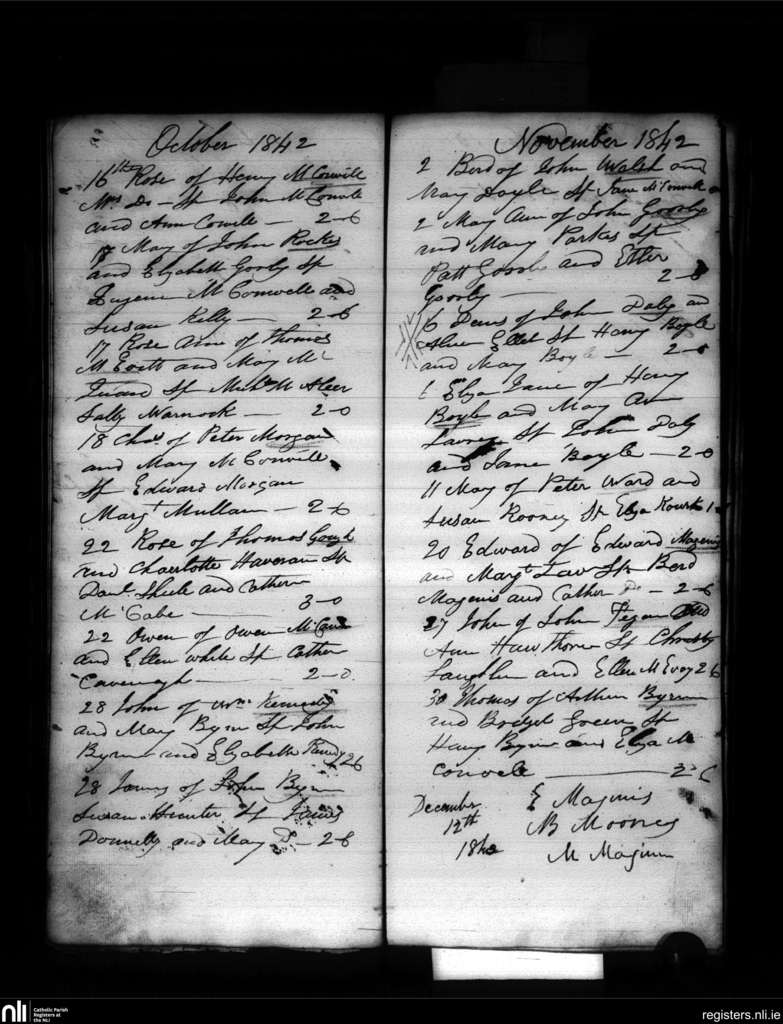 October 1842
16th Rose of Henry McConvile
Mrs Do - Sp John McConvile
and Ann Convile - 2-6
17 Mary of John Rocks
and Elizabeth Gorby Sp
Eugene McConvelle and
Susan Kelly - 2-6
17 Rose Anne of Thomas
McEvitt and Mary Mc
Sp McAleer
Sally Warnock - 2-0
18 Chas. of Peter Morgan
and Mary McConvile
Sp Edward Morgan
Margt Mullan - 2-6
22 Rose of Thomas Gough
and Charlotte Haveran Sp
Danl and Cathern
McCabe - 3-0
22 Owen of Owen McCann
and Ellen White Sp Cathn
Cavenagh - 2-0
28 John of Wm Kennedy
and Mary Byrn Sp John
Byrne and Elizabeth 2 6
28 James of John Byrn
Susan Hunter Sp James
Donnelly and Mary Do - 2-6
November 1842
2 Berd of John Walsh and
Mary Doyle Sp McConvile
2 Mary Ann of John Gooly
and Mary Parkes Sp
Patt and Esther
2-6
6 Denis of John Daly an
Sp Henry Boyle
and Mary Boyle - 2-6
6 Eliza Jane of Henry
Boyle and Mary Ann
Sp John Daly
and Jane Boyle - 2-0
11 Mary of Peter Ward and
Susan Rooney Sp Eliza Rourke
20 Edward of Edward Magenis
and Margt Law Sp Berd
Magenis and Cather Do - 2-6
27 John of John Fegan and
Ann Hawthorn Sp
and Ellen McEvoy 2 6
30 Thomas of Arthur Byrne
and Bridget Green Sp
Henry Byrne and Eliza Mc
Convele - 2-6
December E Maginis
12th B Mooney
1842 M Maginn
nli Catholic Parish
Registers at
the NLI
registers.nli.ie